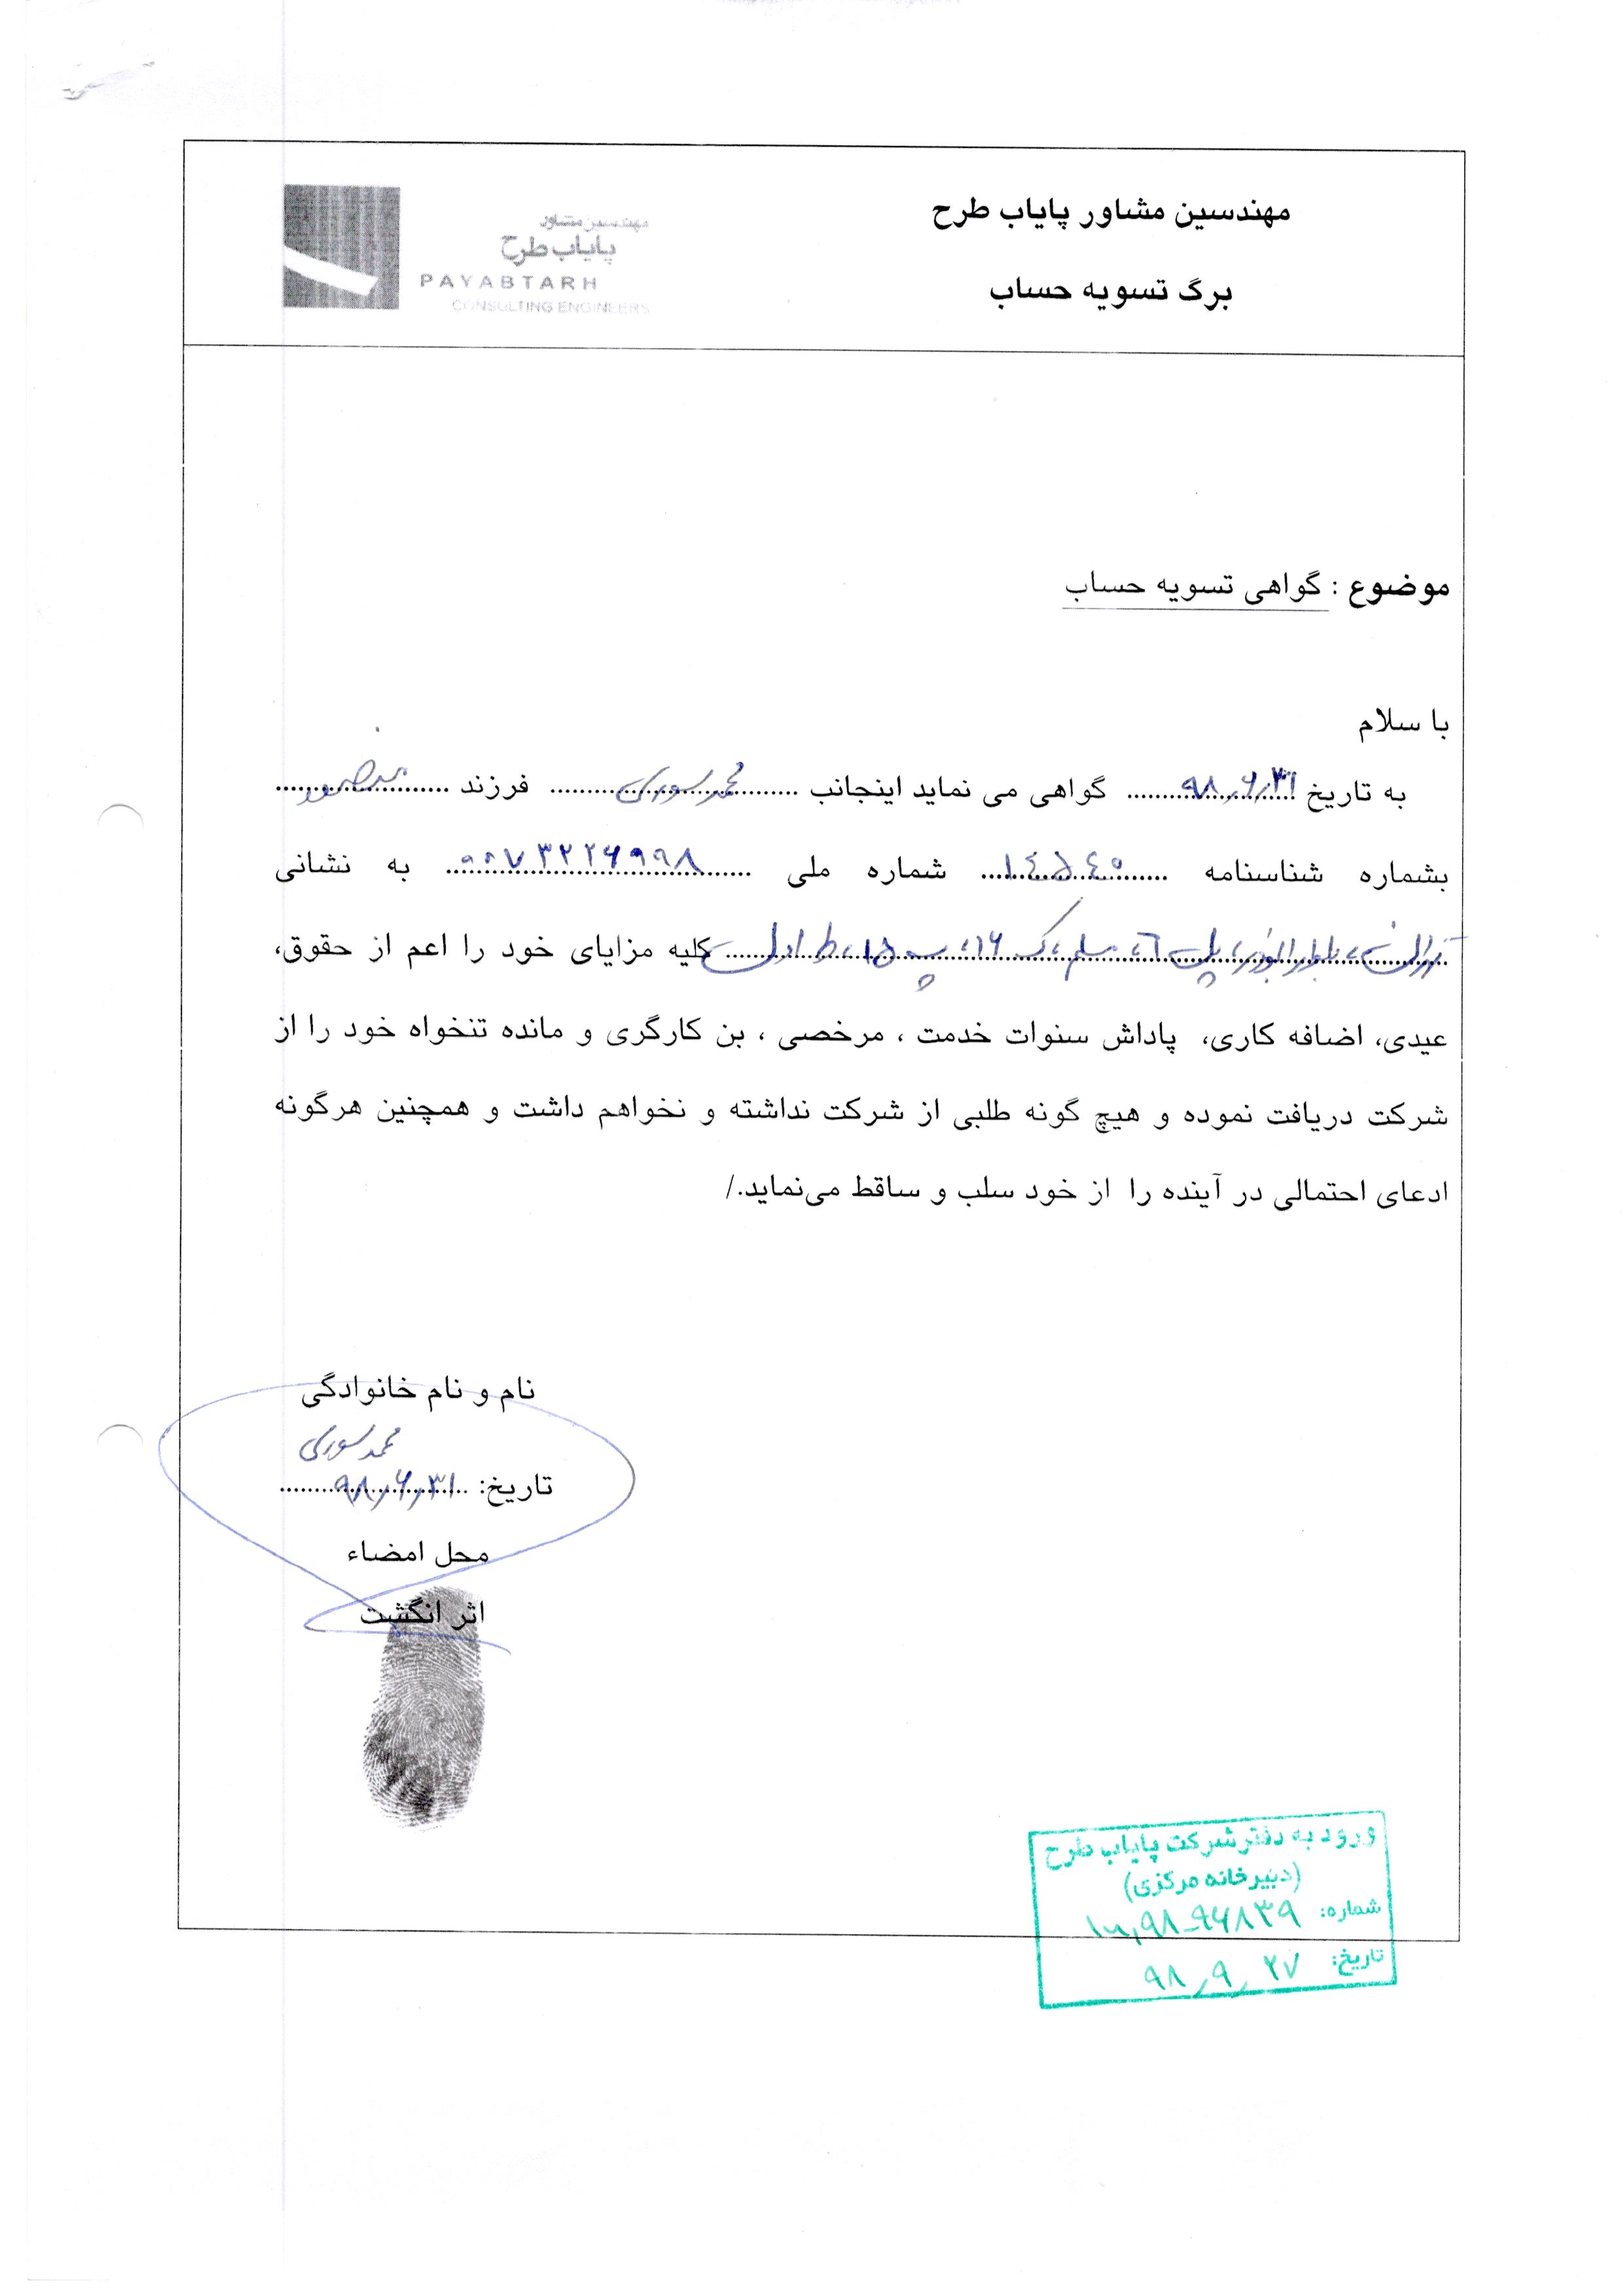 مهندسین مشاور پایاب طرح
برگ تسویه حساب
مهندسین مشاور
پایاب طرح
PAYABTARH
CONSULTING ENGINEERS
موضوع : گواهی تسویه حساب
با سلام
به تاریخ ۹۸٫۶٫۳۱ گواهی می نماید اینجانب محمد سوری فرزند منصور
بشماره شناسنامه ۱۴۵۴۰ شماره ملی ۰۰۷۳۲۲۶۹۹۸ به نشانی
بلوار ابوذر، پل ۶، مسلم، ک ۱۶، پ ۱۵، ط اول کلیه مزایای خود را اعم از حقوق،
عیدی، اضافه کاری، پاداش سنوات خدمت ، مرخصی ، بن کارگری و مانده تنخواه خود را از
شرکت دریافت نموده و هیچ گونه طلبی از شرکت نداشته و نخواهم داشت و همچنین هرگونه
ادعای احتمالی در آینده را از خود سلب و ساقط می‌نماید./
نام و نام خانوادگی
محمد سوری
تاریخ: ۹۸٫۶٫۳۱
محل امضاء
اثر انگشت
ورود به دفتر شرکت پایاب طرح
(دبیرخانه مرکزی)
شماره: ۹۸-۹۶۸۳۹
تاریخ: ۹۸٫۹٫۲۷